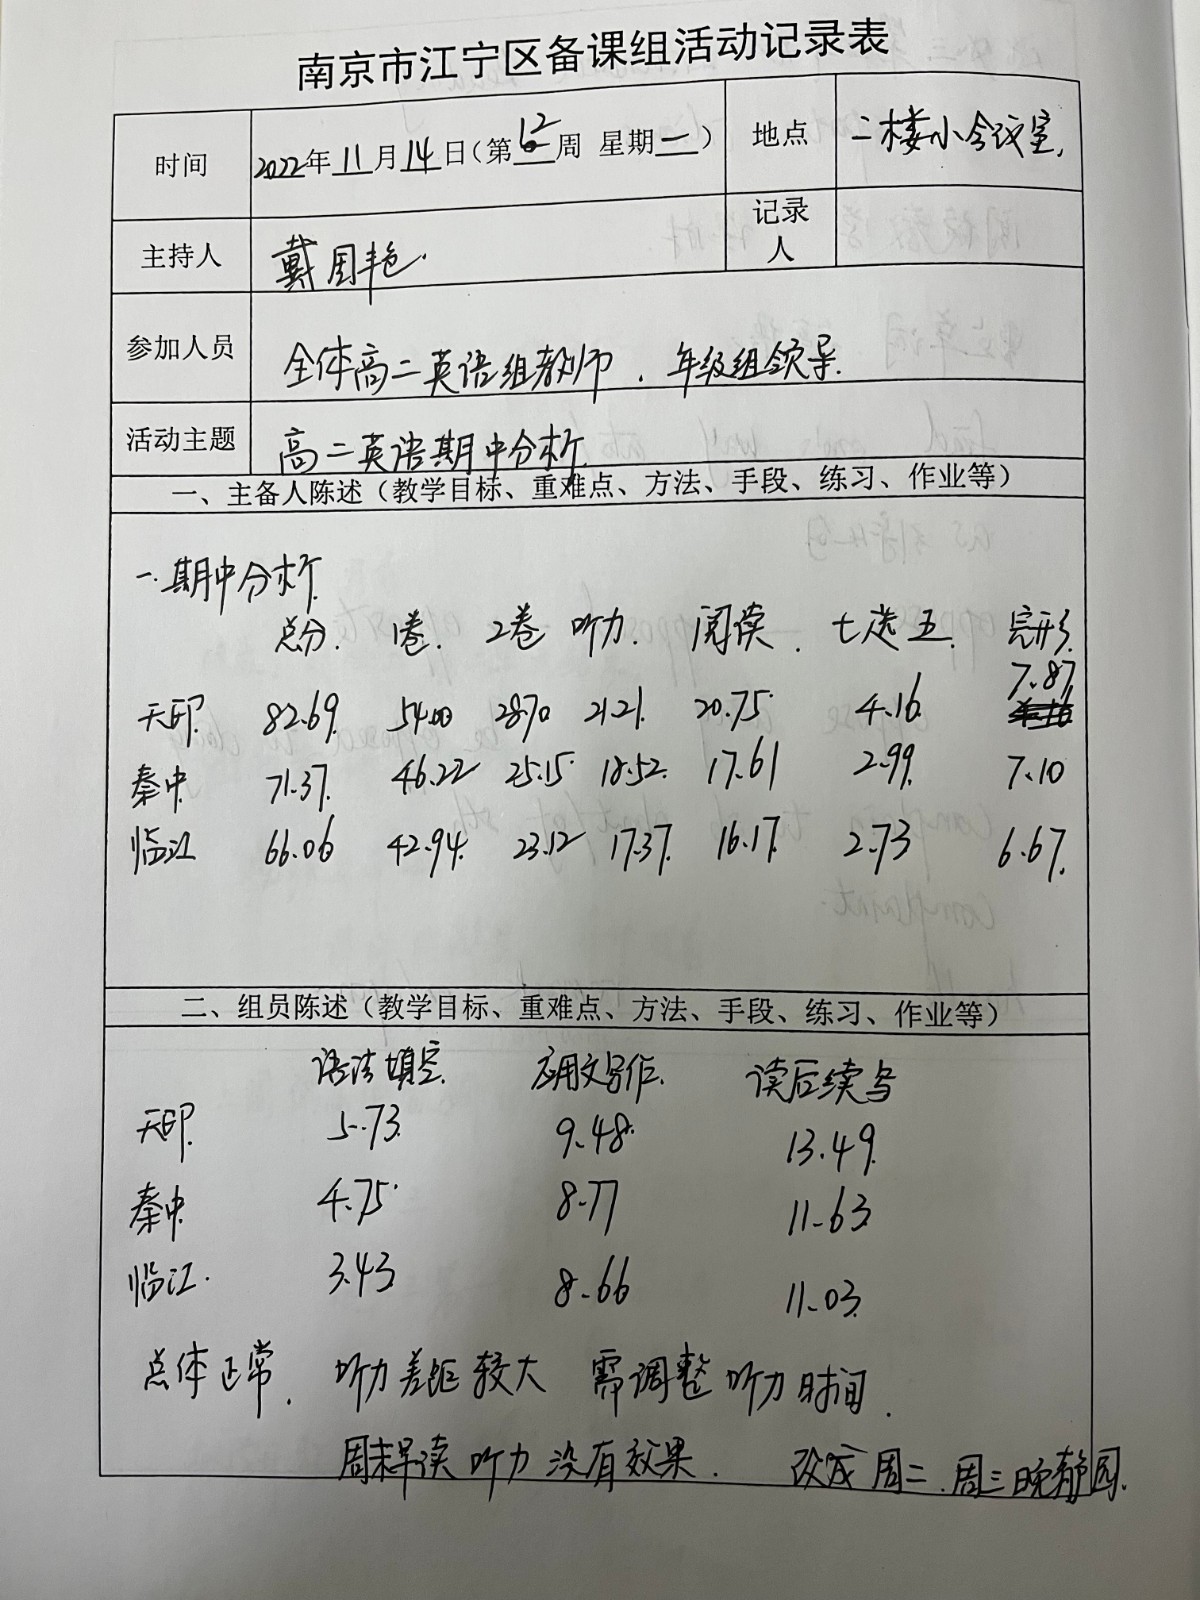 南京市江宁区备课组活动记录表
时间 2022年11月14日(第12周 星期一) 地点 二楼小会议室.
主持人 戴国艳. 记录人
参加人员 全体高二英语组教师 . 年级组领导.
活动主题 高二英语期中分析
一、主备人陈述(教学目标、重难点、方法、手段、练习、作业等)
一.期中分析
总分. 1卷. 2卷 听力. 阅读. 七选五. 完形.
天印 82.69. 54.00 28.70 21.21. 20.75. 4.16. 7.87
秦中. 71.37. 46.22 25.15 18.52. 17.61 2.99. 7.10
临江 66.06 42.94. 23.12 17.37. 16.17. 2.73 6.67.
二、组员陈述(教学目标、重难点、方法、手段、练习、作业等)
语法填空. 应用文写作. 读后续写
天印. 5.73. 9.48. 13.49.
秦中. 4.75. 8.77 11.63.
临江. 3.43. 8.66 11.03.
总体正常. 听力差距较大 需调整听力时间.
周末早读听力没有效果. 改成周二.周三晚静园.